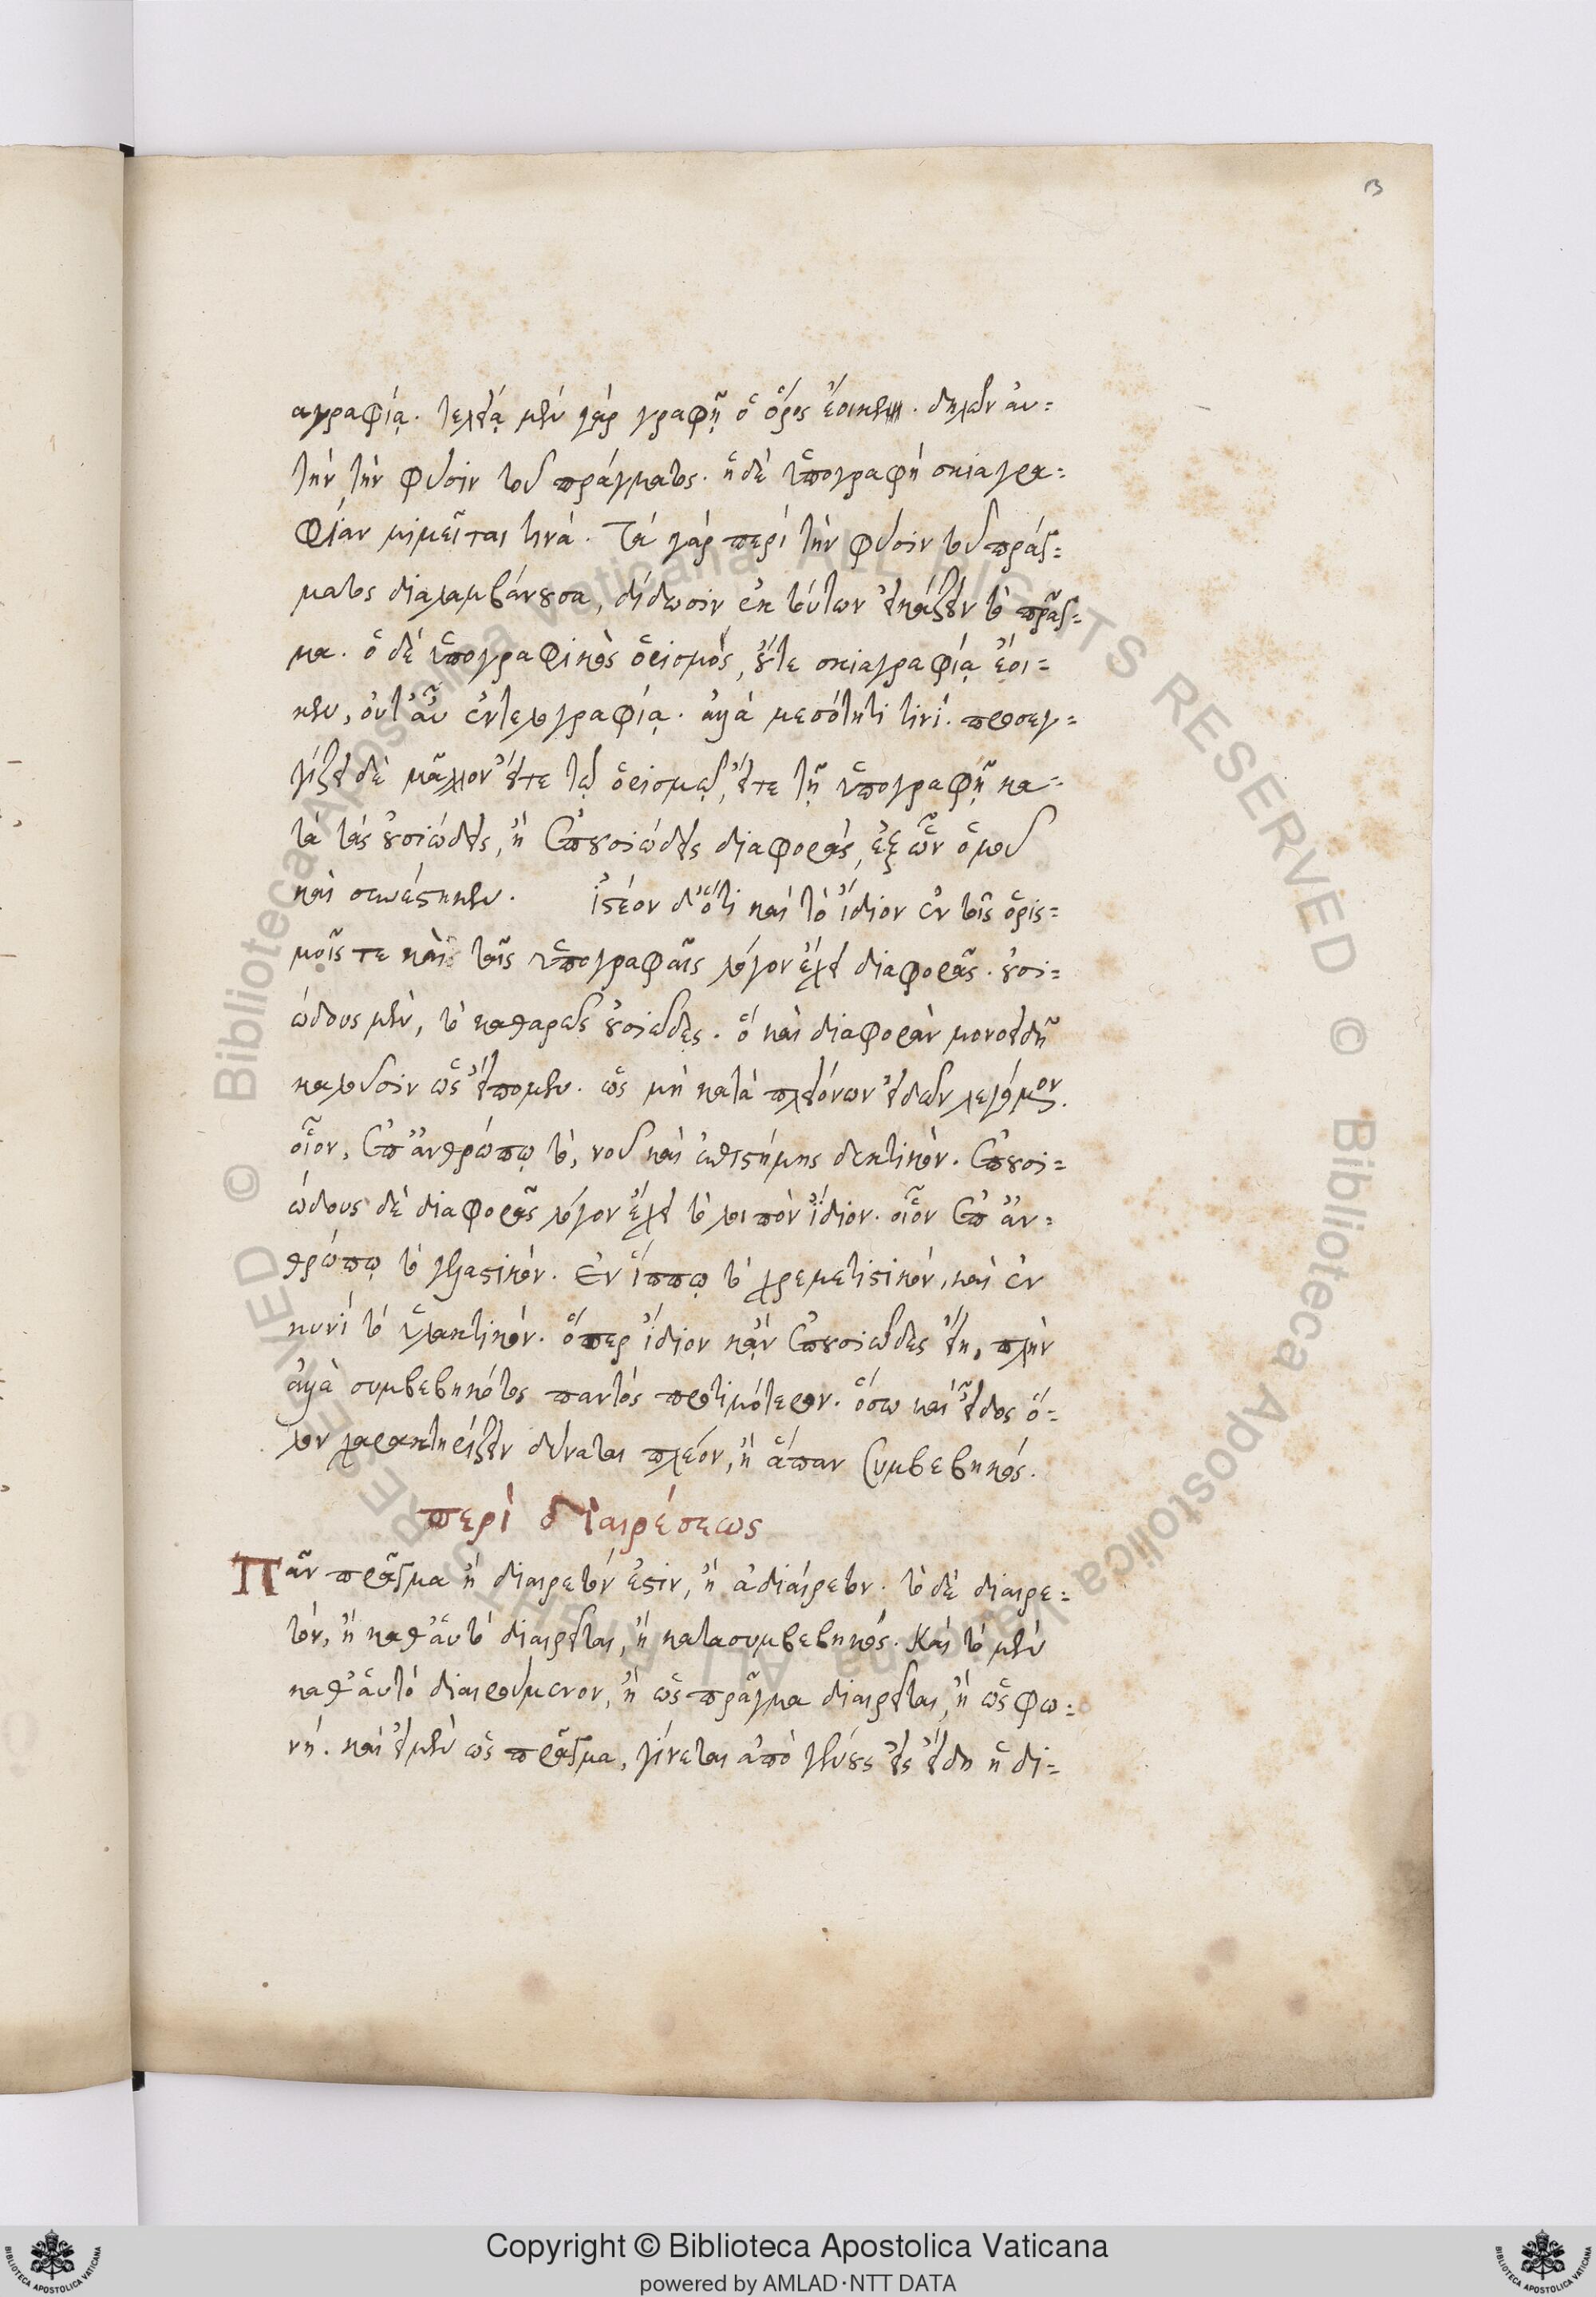 13
αγραφίᾳ. τελείᾳ μὲν γάρ γραφῇ ὁ ὅρος ἔοικεν. δηλῶν ἀυ=
τὴν τὴν φύσιν τοῦ πράγματος. ἡ δὲ ὑπογραφὴ σκιαγρα=
φίαν μιμεῖται τινά. Τὰ γάρ περὶ τὴν φύσιν τοῦ πράγ=
ματος διαλαμβάνουσα, δίδωσιν ἐκ τούτων εἰκάζειν τὸ πρᾶγ=
μα. ὁ δὲ ὑπογραφικὸς ὁρισμός, οὔτε σκιαγραφίᾳ ἔοι=
κεν, οὐτ' ἂν ἐντελογραφίᾳ. ἀλλὰ μεσότητι τινί. προσεγ=
γίζει δὲ μᾶλλον εἴτε τῷ ὁρισμῷ, εἴτε τῇ ὑπογραφῇ κα=
τὰ τὰς οὐσιώδεις, ἢ ἐπουσιώδεις διαφοράς, ἐξ ὧν ὁμοῦ
καὶ συνέστηκεν. ἰστέον δ' ὅτι καὶ τὸ ἴδιον ἐν τοῖς ὁρισ=
μοῖς τε καὶ ταῖς ὑπογραφαῖς λόγον ἔχει διαφορᾶς. οὐσι=
ώδους μὲν, τὸ καθαρῶς οὐσιῶδες. ὃ καὶ διαφορὰν μονοειδῆ
καλοῦσιν ὡς εἴπομεν. ὡς μὴ κατὰ πλειόνων εἰδῶν λεγόμενον.
οἷον, ἐπ' ἀνθρώπῳ τὸ, νοῦ καὶ ἐπιστήμης δεκτικόν. ἐπουσι=
ώδους δὲ διαφορᾶς λόγον ἔχει τὸ λοιπὸν ἴδιον. οἷον ἐπ' ἀν=
θρώπῳ τὸ γελαστικόν. Ἐν ἵππῳ τὸ χρεμετιστικόν, καὶ ἐν
κυνὶ τὸ ὑλακτικόν. ὅπερ ἴδιον κἂν ἐπουσιῶδες εἴη, πλὴν
ἀλλὰ συμβεβηκότος παντὸς προτιμότερον. ὅσω καὶ εἶδος ὅ=
λον χαρακτηρίζειν δύναται πλέον, ἢ ἅπαν συμβεβηκός.
περὶ διαιρέσεως
Πᾶν πρᾶγμα ἢ διαιρετόν ἐστιν, ἢ ἀδιάιρετον. τὸ δὲ διαιρε=
τόν, ἢ καθ' ἁυτὸ διαιρεῖται, ἢ κατασυμβεβηκός. Καὶ τὸ μὲν
καθ' ἁυτὸ διαιρούμενον, ἢ ὡς πρᾶγμα διαιρεῖται, ἢ ὡς φω=
νή. καὶ εἰ μὲν ὡς πρᾶγμα, γίνεται ἀπὸ γένους εἰς εἴδη ἡ δι=
Copyright © Biblioteca Apostolica Vaticana
powered by AMLAD·NTT DATA